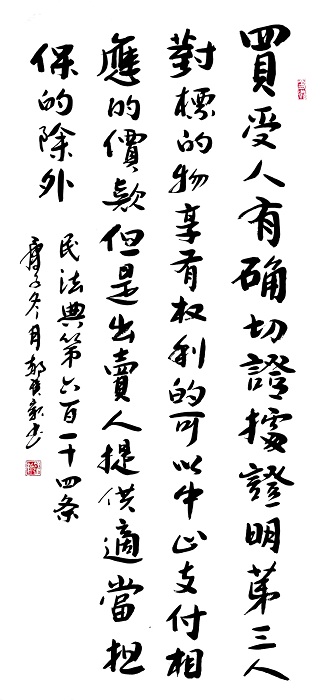 買受人有确切證據證明第三人
對標的物享有权利的可以中止支付相
應的價款但是出賣人提供適當担
保的除外
民法典第六百一十四条
庚子冬月郭书